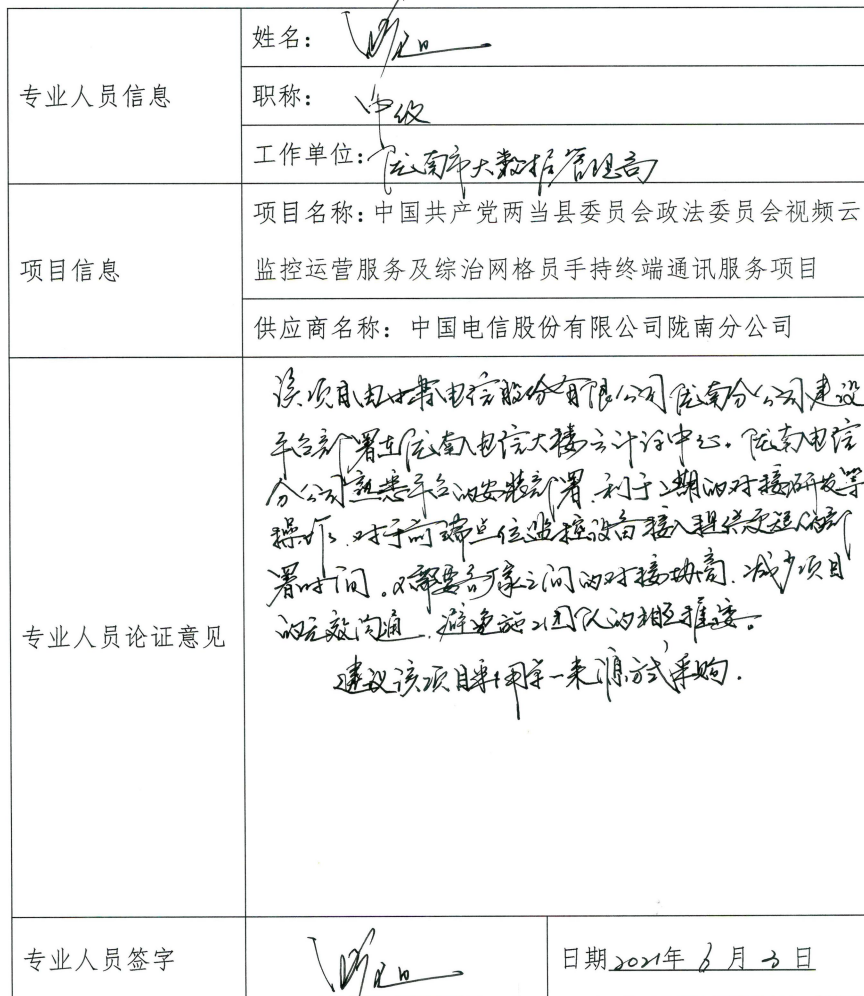 专业人员信息
姓名：
职称：中级
工作单位：陇南市大数据管理局
项目信息
项目名称：中国共产党两当县委员会政法委员会视频云
监控运营服务及综治网格员手持终端通讯服务项目
供应商名称：中国电信股份有限公司陇南分公司
专业人员论证意见
该项目由中国电信股份有限公司陇南分公司建设
平台部署在陇南电信大楼云计算中心。陇南电信
分公司熟悉平台的安装部署，利于二期的对接研发等
操作，对于前端点位监控设备接入提供更短的部
署时间。不需要厂家之间的对接协商，减少项目
的无效沟通，避免施工团队的相互推诿。
建议该项目采用单一来源方式采购.
专业人员签字
日期2021年 月3日